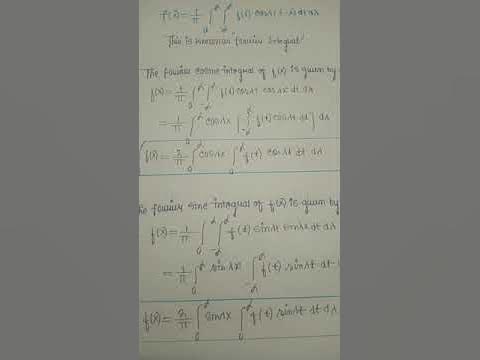 f(x) = 1/π ∫₀^∞ ∫₋∞^∞ f(t) cos λ(t-x) dt dλ
This is known as fourier Integral
The fourier cosine integral of f(x) is given by
f(x) = 1/π ∫₀^∞ ∫₋∞^∞ f(t) cos λt cos λx dt dλ
= 1/π ∫₀^∞ cos λx ∫₋∞^∞ f(t) cos λt dt} dλ
f(x) = 2/π ∫₀^∞ cos λx ∫₀^∞ f(t) cos λt dt dλ
fourier sine integral of f(x) is given by
f(x) = 1/π ∫₀^∞ ∫₋∞^∞ f(t) sin λt sin λx dt dλ
= 1/π ∫₀^∞ sin λx ∫₋∞^∞ f(t) sin λt dt
f(x) = 2/π ∫₀^∞ sin λx ∫₀^∞ f(t) sin λt dt dλ